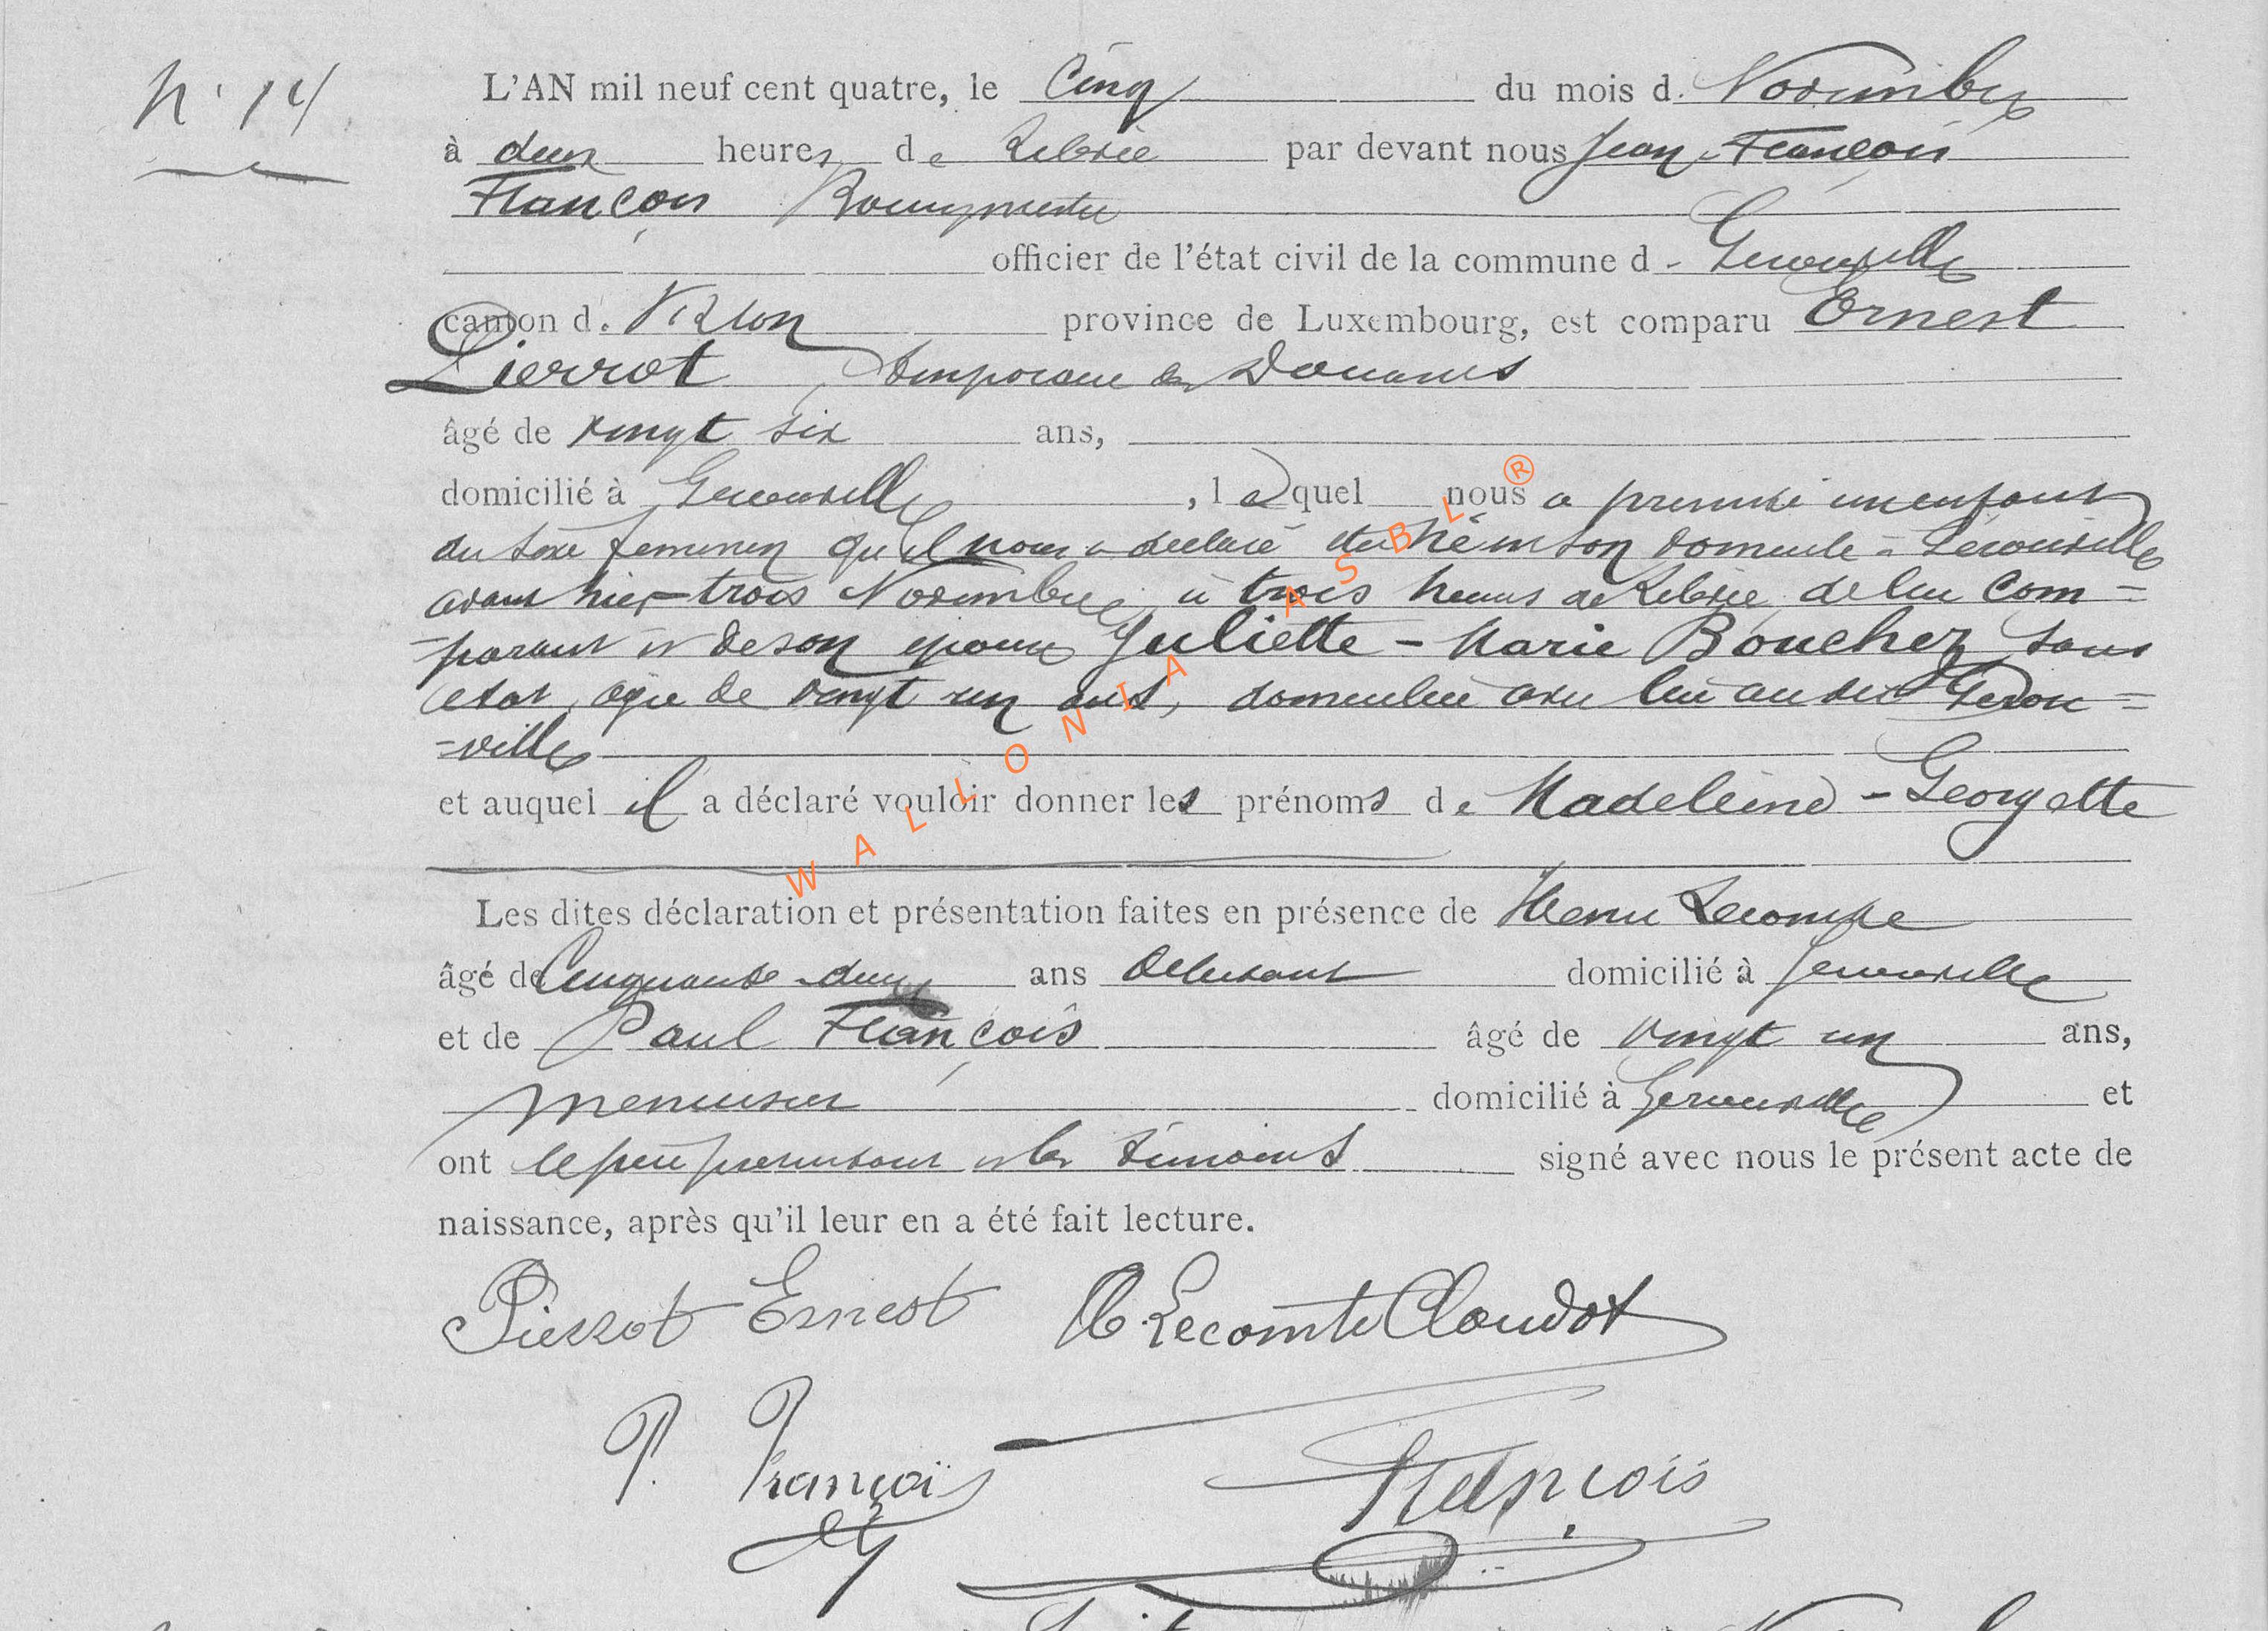 N° 14
L'AN mil neuf cent quatre, le Cinq du mois de Novembre
à deux heures de Relevée par devant nous Jean-François
François Bourgmestre
officier de l'état civil de la commune de Gerouville
canton de Virton province de Luxembourg, est comparu Ernest
Pierrot, des Douanes
âgé de vingt six ans,
domicilié à Gerouville, lequel nous a présenté un enfant
du sexe feminin qu'il nous a déclaré être né en son domicile à Gérouville
avant hier trois Novembre à trois heures de Relevée, de lui Com=
=parant et de son epouse Juliette-Marie Bouchez, sans
état, agée de vingt un ans, domiciliée avec lui au dit Gerou=
=ville
et auquel il a déclaré vouloir donner les prénoms de Madeleine-Georgette
Les dites déclaration et présentation faites en présence de Henri Lecomte
âgé de Cinquante-deux ans domicilié à Gerouville
et de Paul François âgé de vingt un ans,
menuisier domicilié à Gerouville et
ont le père présentant et les témoins signé avec nous le présent acte de
naissance, après qu'il leur en a été fait lecture.
Pierrot Ernest H. Lecomte Claudot
P. François
François
WALLONIA ASBL ®